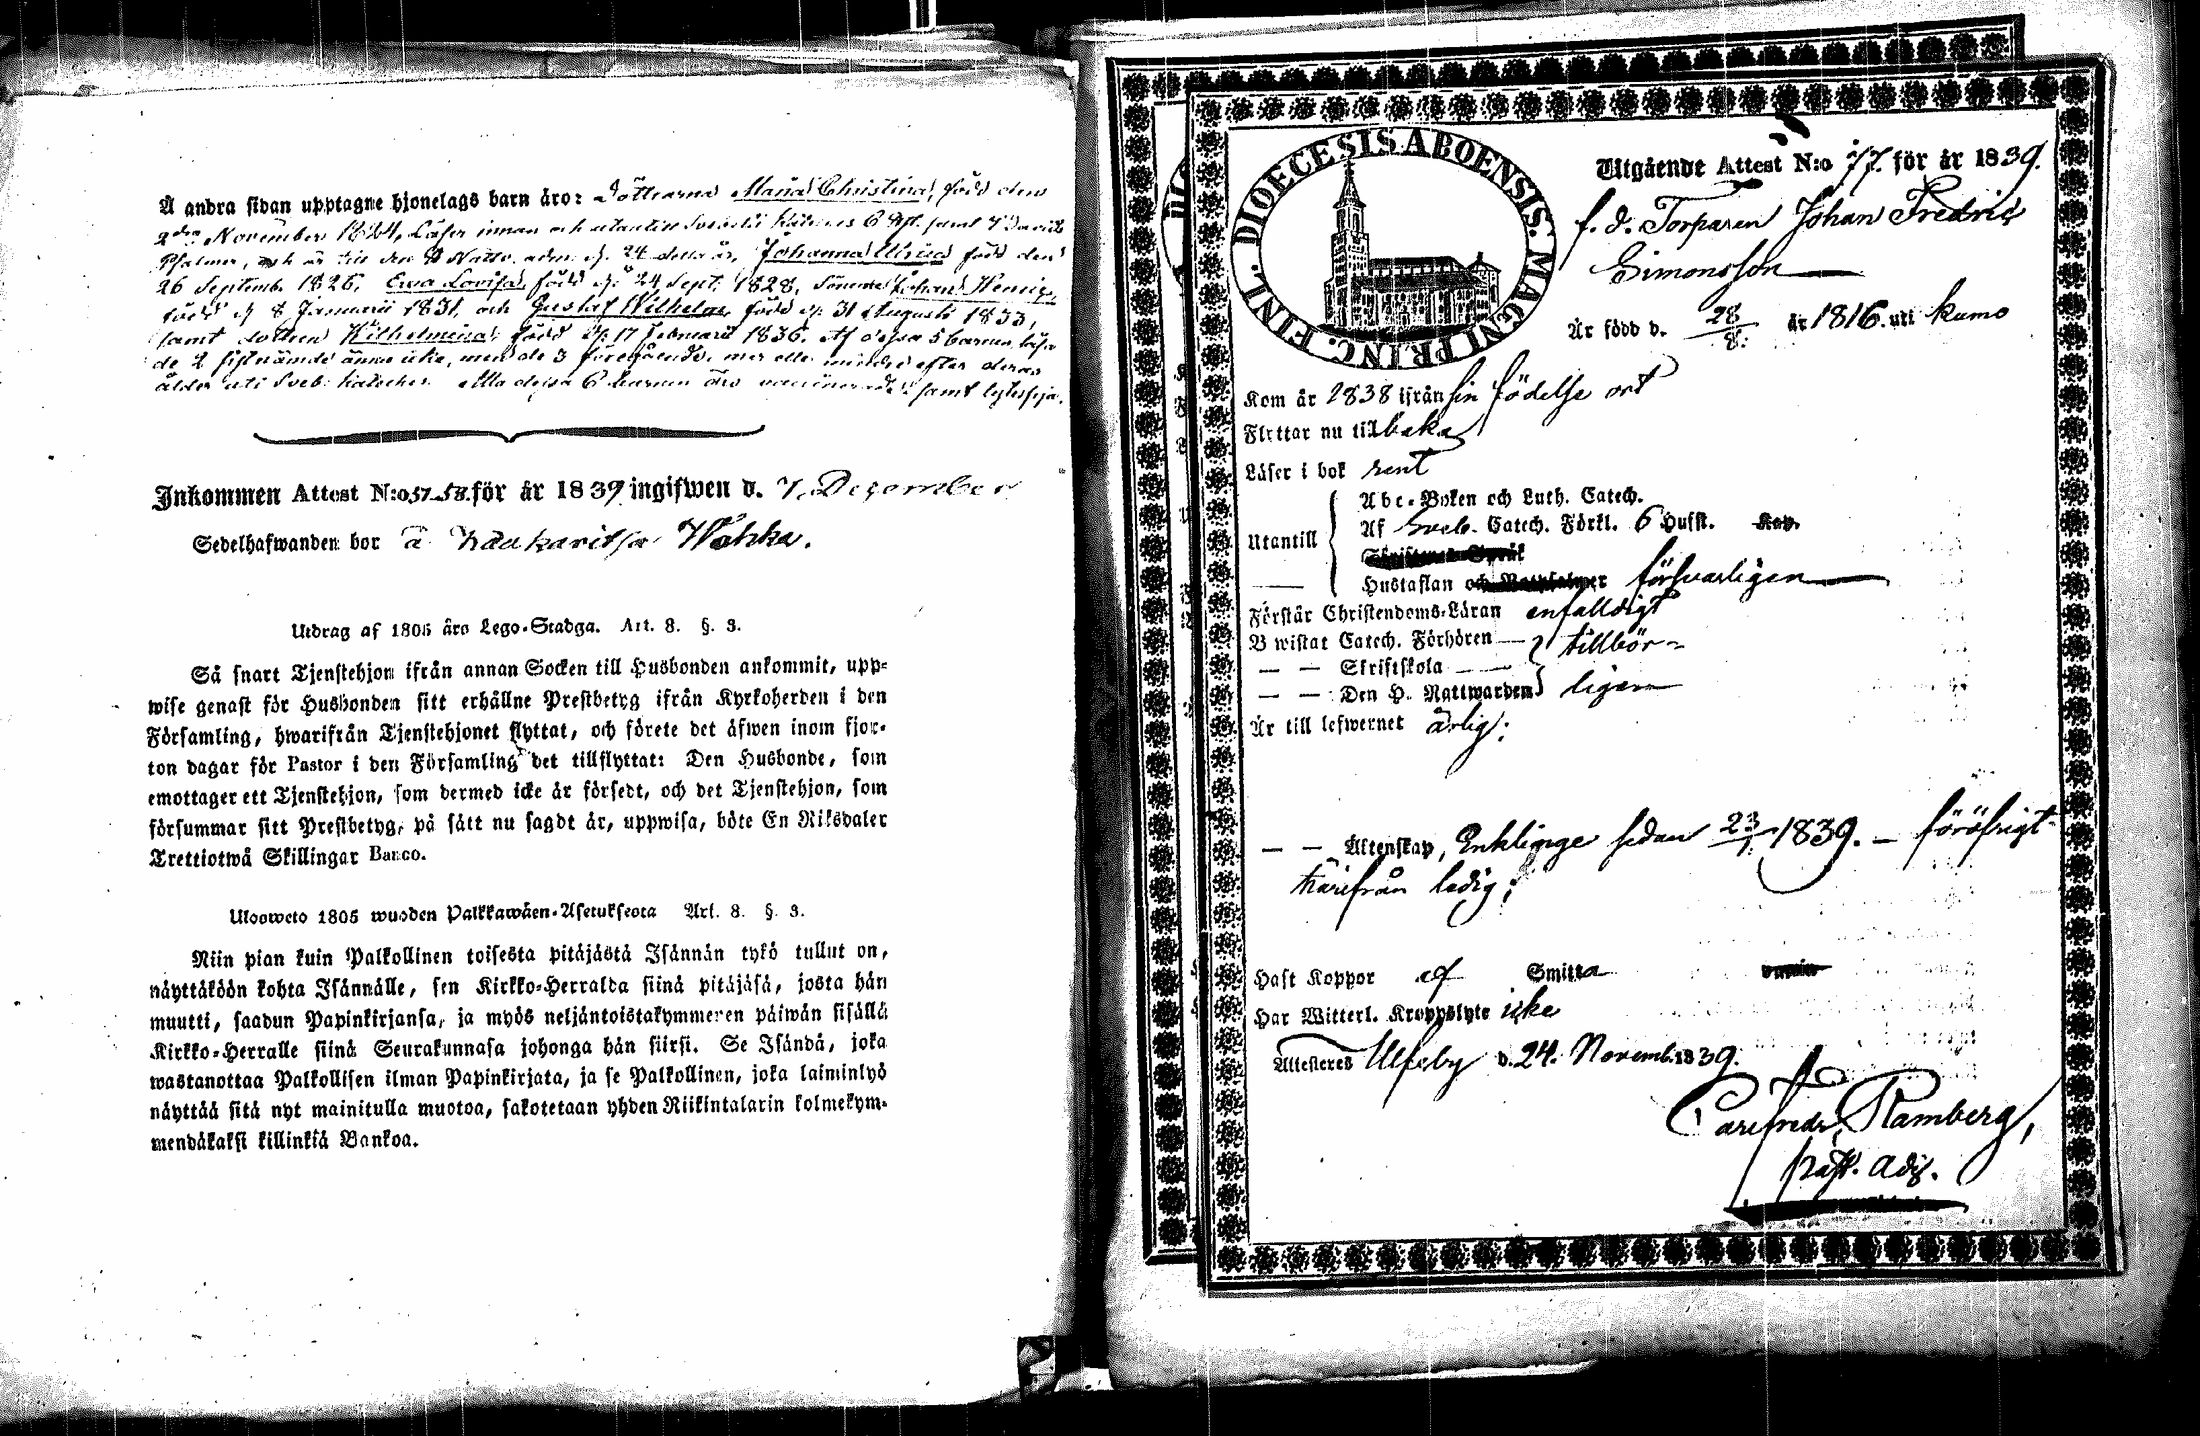 Å andra sidan upptagne hjonelags barn äro: Döttrarna Maria Christina, född den
2dra November 1824, Läser innan och utantill Svebelii Kateches 6 samt 7 Davids
Psalmer, och är till den H. Nattv. adm. d. 24 detta år, Johanna Ulrica född den
26 Septemb. 1826, Ewa Lovisa, född d. 24 Sept. 1828, Sönerne Johan Henric,
född d 8 Januarii 1831, och Gustaf Wilhelm, född d. 31 Augusti 1833,
samt dottren Wilhelmina, född d. 17 Februarii 1836. Af dessa 5 barnen läsa
de 2 sistnämde ännu icke, men de 3 föregående, mer eller mindre efter deras
ålder uti Sveb: Katechen. Alla dessa 6 barnen äro vaccinerade samt lytesfria.
Inkommen Attest N:o 57-58. för år 1839 ingifwen d. 7. December
Sedelhafwanden bor å Wähka.
Utdrag af 1805 års Lego-Stadga. Art. 8. §. 3.
Så snart Tjenstehjon ifrån annan Socken till Husbonden ankommit, upp-
wise genast för Husbonden sitt erhållne Prestbetyg ifrån Kyrkoherden i den
Församling, hwarifrån Tjenstehjonet flyttat, och förete det äfwen inom fjor-
ton dagar för Pastor i den Församling det tillflyttat: Den Husbonde, som
emottager ett Tjenstehjon, som dermed icke är försedt, och det Tjenstehjon, som
försummar sitt Prestbetyg, på sätt nu sagdt är, uppwisa, böte En Riksdaler
Trettiotwå Skillingar Banco.
Ulosweto 1805 wuoden Palkkawäen-Asetuksesta Art. 8. §. 3.
Niin pian kuin Palkollinen toisesta pitäjästä Isännän tykö tullut on,
näyttäköön kohta Isännälle, sen Kirkko-Herralda siinä pitäjäsä, josta hän
muutti, saadun Papinkirjansa, ja myös neljäntoistakymmenen päiwän sisällä
Kirkko-Herralle siinä Seurakunnasa johonga hän siirsi. Se Isändä, joka
wastanottaa Palkollisen ilman Papinkirjata, ja se Palkollinen, joka laiminlyö
näyttää sitä nyt mainitulla muotoa, sakotetaan yhden Riikintalarin kolmekym-
mendäkaksi killinkiä Bankoa.
DIOECESIS ABOENSIS. MAGNI PRINC. FINL.
Utgående Attest N:o 77. för år 1839.
f. d. Torparen Johan Fredric
Simonsson
Är född d. 28/8: år 1816. uti Kumo
Kom år 1838 ifrån sin födelse ort
Flyttar nu tillbaka
Läser i bok rent
Utantill
Abc-Boken och Luth. Catech.
Af Sveb. Catech. Förkl. 6 Hufst. Kap.
Skriftenes Språk
Hustaflan och Botpsalmer försvarligen
Förstår Christendoms-Läran enfaldigt
Bewistat Catech. Förhören } tillbör-
— — Skriftskola
— — Den H. Nattwarden } ligen
Är till lefwernet ärlig;
— — Äktenskap, Enklinge sedan 23/1. 1839. — föröfrigt
härifrån ledig;
Haft Koppor af Smitta vaccin
Har Witterl. Kroppslyte icke
Attesteras Ulfsby d. 24. Novemb. 1839.
Carl Fredr. Ramberg,
past. adj.